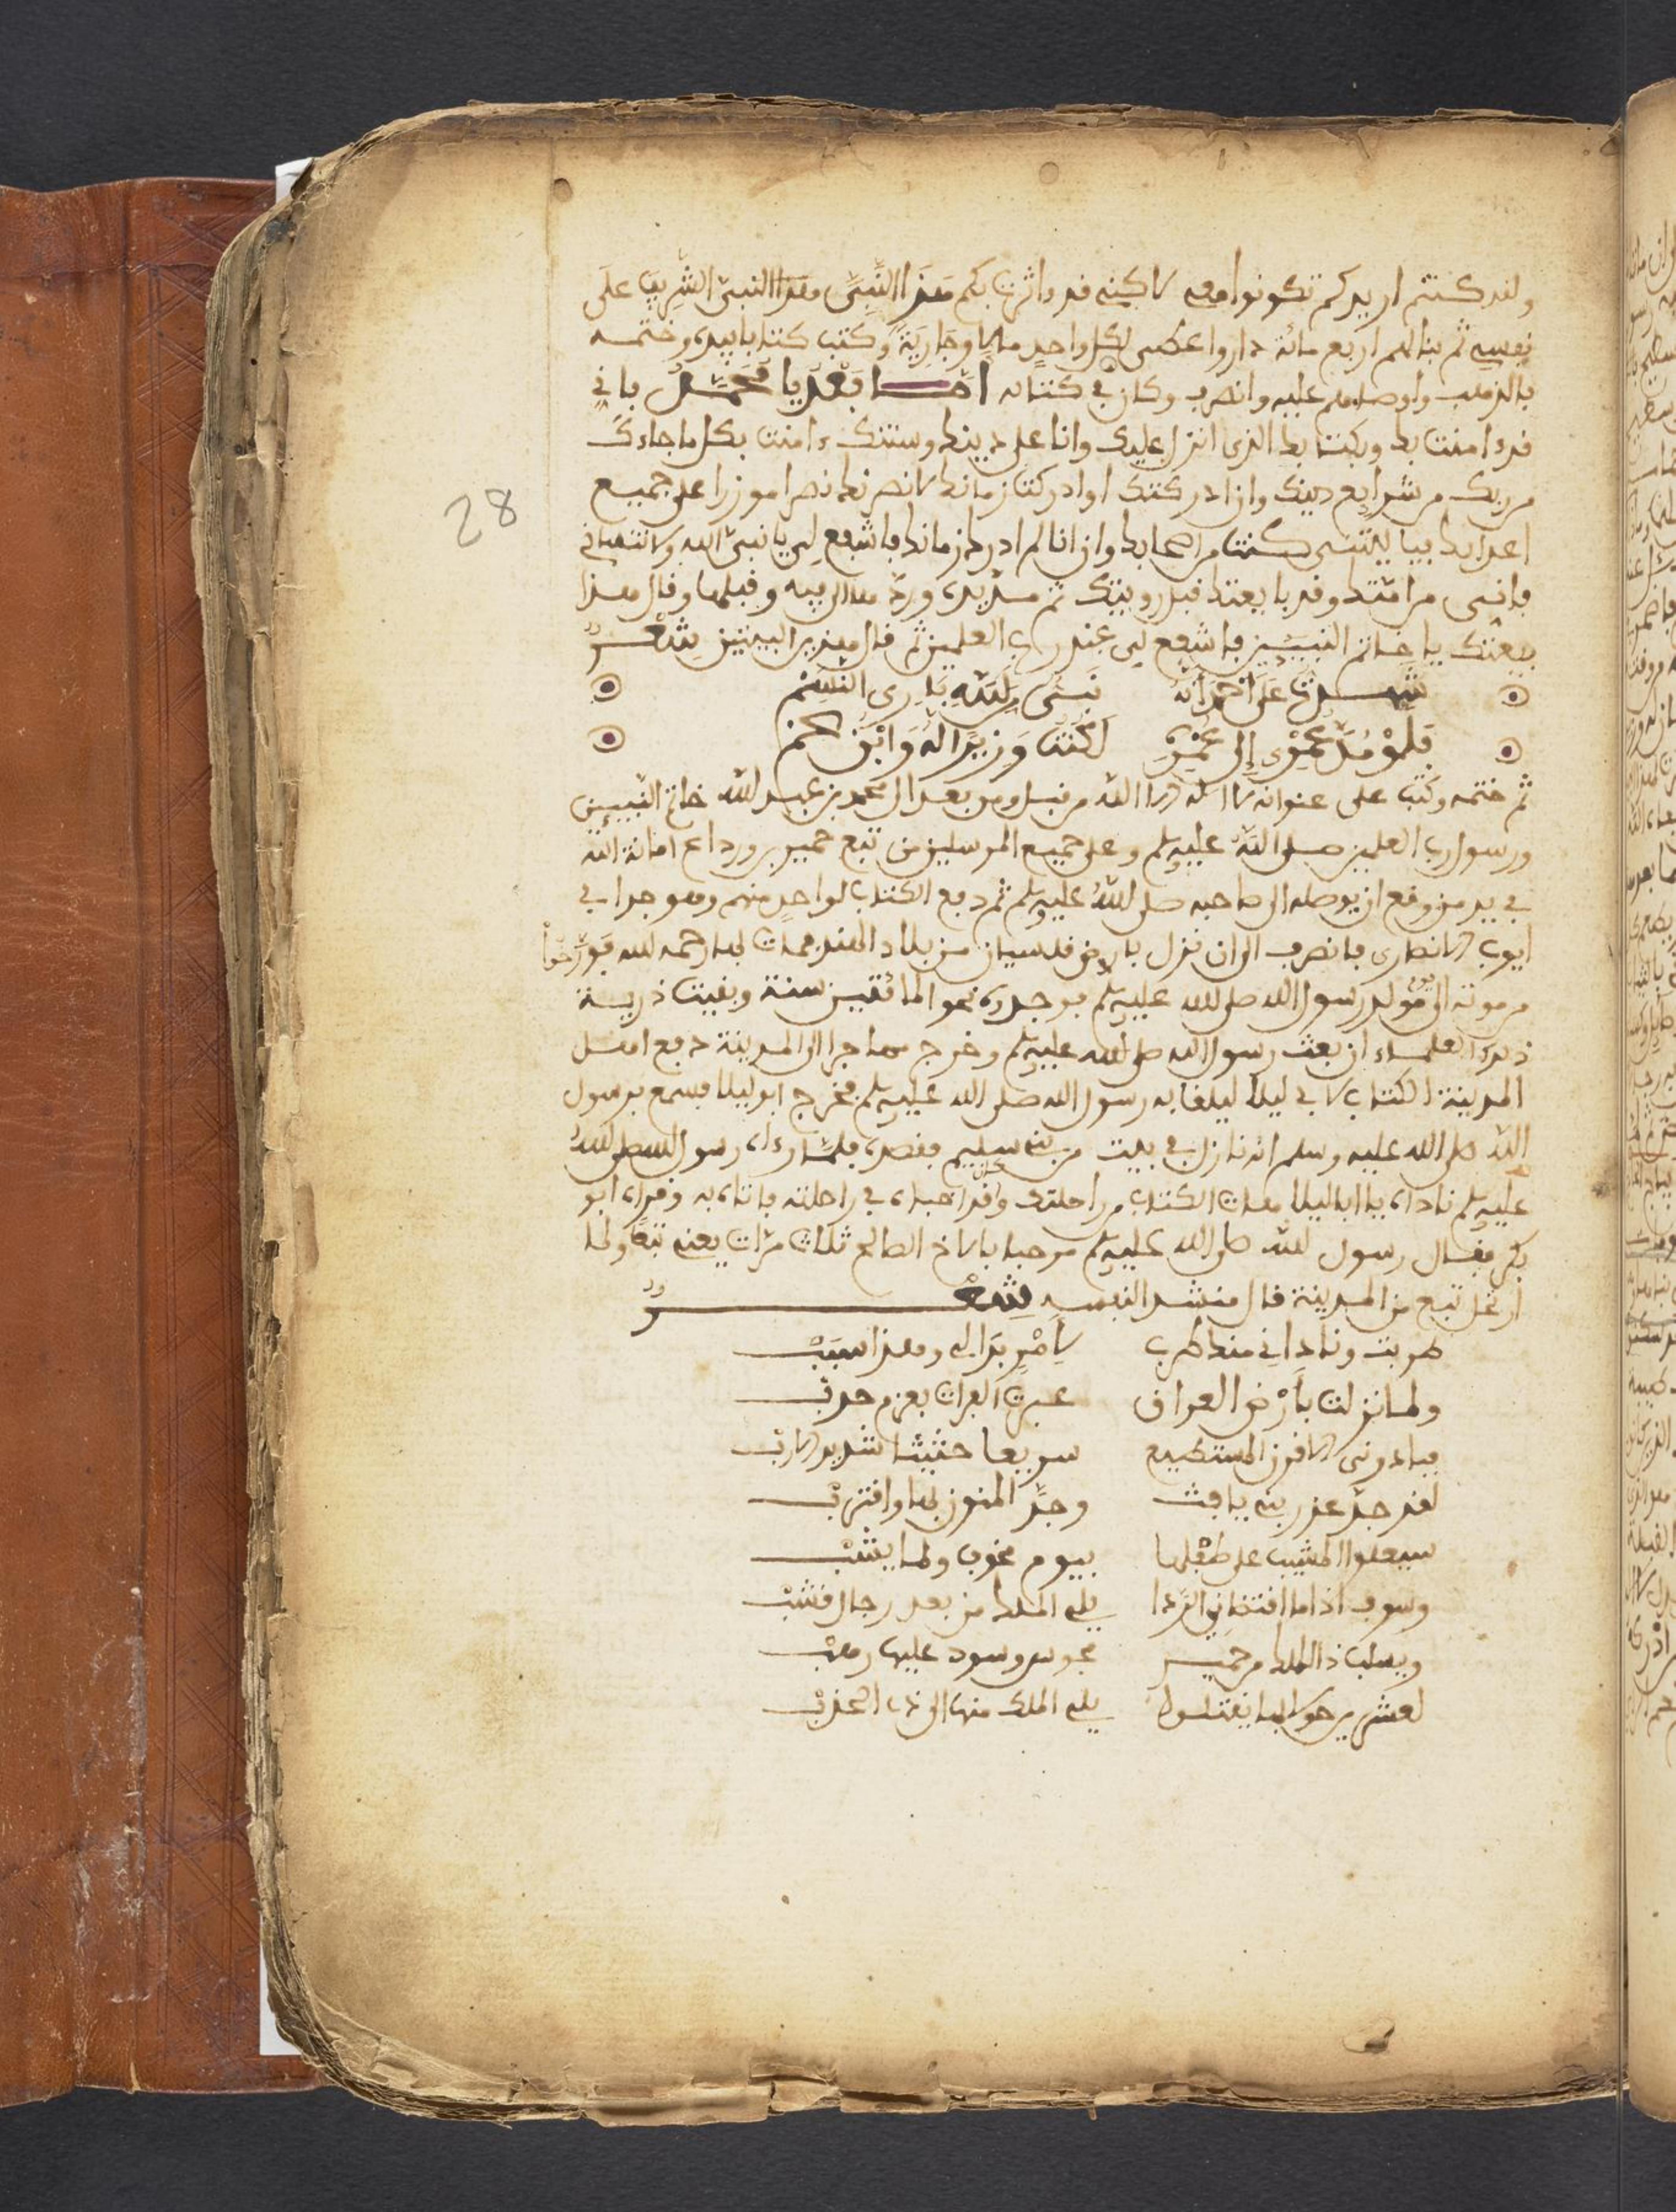 ولقد كنتم اريدكم تكونوا معي لاكني قد ءاثرت بكم هذا النبي هذا النبي الشريف على
نفسي ثم بنا لهم اربع مائة دار واعطى لكل واحد مالا وجارية وكتب كتابا بيده وختمه
بالذهب واوصاهم عليه وانصرف وكان في كتابه اما بعد يا محمد فاني
قد ءامنت بك وبكتابك الذي انزل عليك وانا على دينك وسنتك ءامنت بكل ما جاءك
من ربك من شرايع دينك وان ادركتك او ادركت زمانك لانصرنك نصرا موزرا على جميع
اعدايك فيا ليتني كنت من اصحابك وان انا لم ادرك زمانك فاشفع لي يا نبي الله ولا تنساني
فانني من امتك وقد بايعتك قبل رويتك ثم مد يده ورد ها الى فيه وقبلها وقال هذا
بيعتك يا خاتم النبيين فاشفع لي عند رب العلمين ثم قال هذين البيتين شعر
شهدت على احمد انه نبي من الله باري النسم
فلو مد عمري الى عمره لكنت وزيرا له وابن عم
ثم ختمه وكتب على عنوانه لا اله الا الله من قبل ومن بعد الى محمد بن عبد الله خاتم النبيين
ورسول رب العلمين صلى الله عليه وسلم وعلى جميع المرسلين من تبع حمير بن ورداع امانة الله
في يد من وقع ان يوصله الى صاحبه صلى الله عليه وسلم ثم دفع الكتاب لواحد منهم وهو جد ابي
ايوب الانصاري فانصرف الى ان نزل بارض من بلاد الهند فمات بها رحمه الله فورخوا
من موته الى مولد رسول الله صلى الله عليه وسلم فوجدوه نحو المائتين سنة وبقيت ذرية
ذلك العلماء ان بعث رسول الله صلى الله عليه وسلم وخرج مهاجرا الى المدينة دفع اهل
المدينة الكتاب لابي ليلا ليلقا به رسول الله صلى الله عليه وسلم فخرج ابو ليلا فسمع برسول
الله صلى الله عليه وسلم انه نازل في بيت من بني سليم فقصده فلما رءاه رسول الله صلى الله
عليه وسلم ناداه يا ابا ليلا هات الكتاب من راحلتك وكان قد اخباه في راحلته فاتاه به وقراه ابو
بكر فقال رسول الله صلى الله عليه وسلم مرحبا بالاخ الصالح ثلاث مرات يعني تبعا ولما
ارتحل تبع من المدينة قال منشد النفسه شعر
طربت وناداني منك طرب لامر بدا لي وهذا سبب
ولما نزلت بارض العراق عبرت الفرات بعزم حدب
فبادرني لاقون المستطيع سريعا حثيثا شديد الارب
لقد جد عذر بني يافث وجد المنون لها واقترب
سيعلوا المشيب على طفلها بيوم مخوف ولما يشب
وسوف اذا ما افتخاني الردا يلي الملك من بعد رجال قشب
ويسلب ذا الملك من حمير مجوس وسود عليها رهب
لعشرين حولا لها يقتلوا يلي الملك منها الى ذي الحدب
28